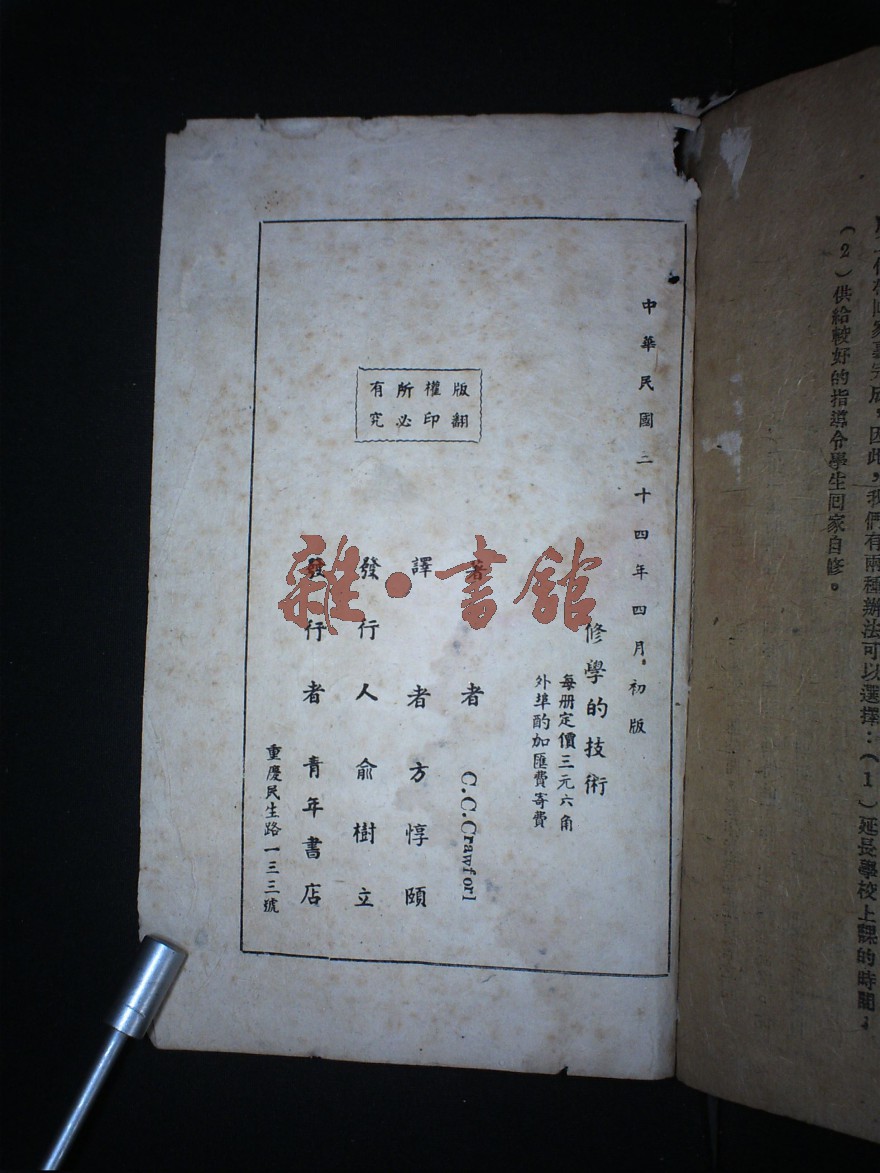 完成，因此，我們有兩種辦法可以選擇：（1）延長學校上課的時間，
（2）供給較好的指導令學生回家自修。
中華民國二十四年四月初版
修學的技術
每册定價三元六角
外埠酌加匯費寄費
版權所有
翻印必究
著者 C.C.Crawforl
譯者 方惇頤
發行人 俞樹立
發行者 青年書店
重慶民生路一三三號
雜·書館